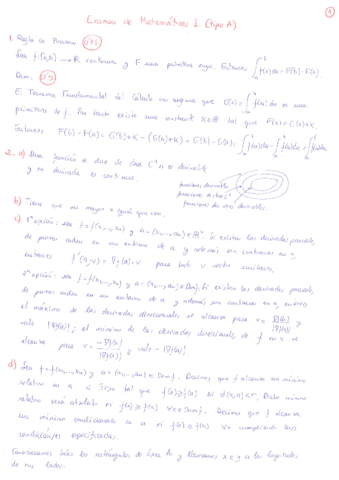 Examen de Matemáticas 1 (tipo A)
1. Regla de Barrow 0'75
Sea f:[a,b] → R continua y F una primitiva suya. Entonces ∫ f(x)dx = F(b) - F(a).
Dem:
El Teorema Fundamental del Cálculo nos asegura que G(x) = ∫ f(u)du es una
primitiva de f. Por tanto existe una constante K∈R tal que F(x) = G(x)+K.
Entonces F(b) - F(a) = G(b)+K - (G(a)+K) = G(b) - G(a) = ∫f(u)du - ∫f(u)du = ∫f(u)du
2. a) Una función se dice de clase C¹ si es derivable
y su derivada es continua.
funciones derivables
funciones de clase C¹
funciones dos veces derivables
b) Tiene que ser mayor o igual que cero.
c) 1ª opción: sea f = f(x₁,...,xₙ) y a = (a₁,...,aₙ)∈Rⁿ. Si existen las derivadas parciales
de primer orden en un entorno de a y además son continuas en a,
entonces f'(a;v) = ∇f(a)·v para todo v vector unitario.
2ª opción: sea f = f(x₁,...,xₙ) y a = (a₁,...,aₙ)∈Dom f. Si existen las derivadas parciales
de primer orden en un entorno de a y además son continuas en a, entonces
el máximo de las derivadas direccionales se alcanza para v = ∇f(a)/|∇f(a)| y
vale |∇f(a)|; el mínimo de las derivadas direccionales de f en a se
alcanza para v = -∇f(a)/|∇f(a)| y vale -|∇f(a)|
d) Sea f = f(x₁,...,xₙ) y a = (a₁,...,aₙ)∈Dom f. Decimos que f alcanza un mínimo
relativo en a si ∃r>0 tal que f(x)≥f(a) si d(x,a)<r. Dicho mínimo
relativo será absoluto si f(x)≥f(a) ∀x∈Dom f. Decimos que f alcanza
un mínimo condicionado en a si f(x)≥f(a) ∀x cumpliendo las
condiciones especificadas.
Consideramos todos los rectángulos de área A y llamamos x e y a las longitudes
de sus lados.